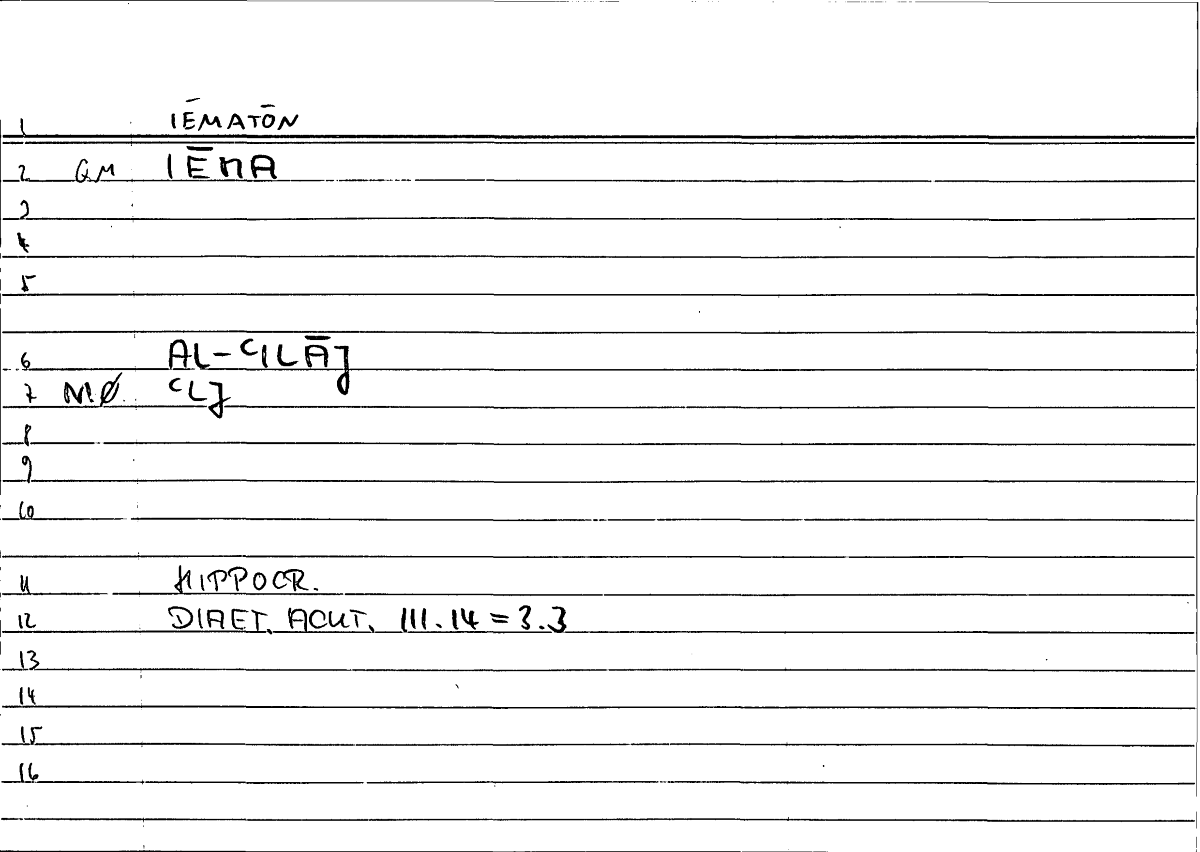 1 IĒMATŌN
2 GM IĒMA
3
4
5
6 AL-ʿILĀJ
7 MØ ʿLJ
8
9
10
11 HIPPOCR.
12 DIAET. ACUT. III.14 = 3.3
13
14
15
16